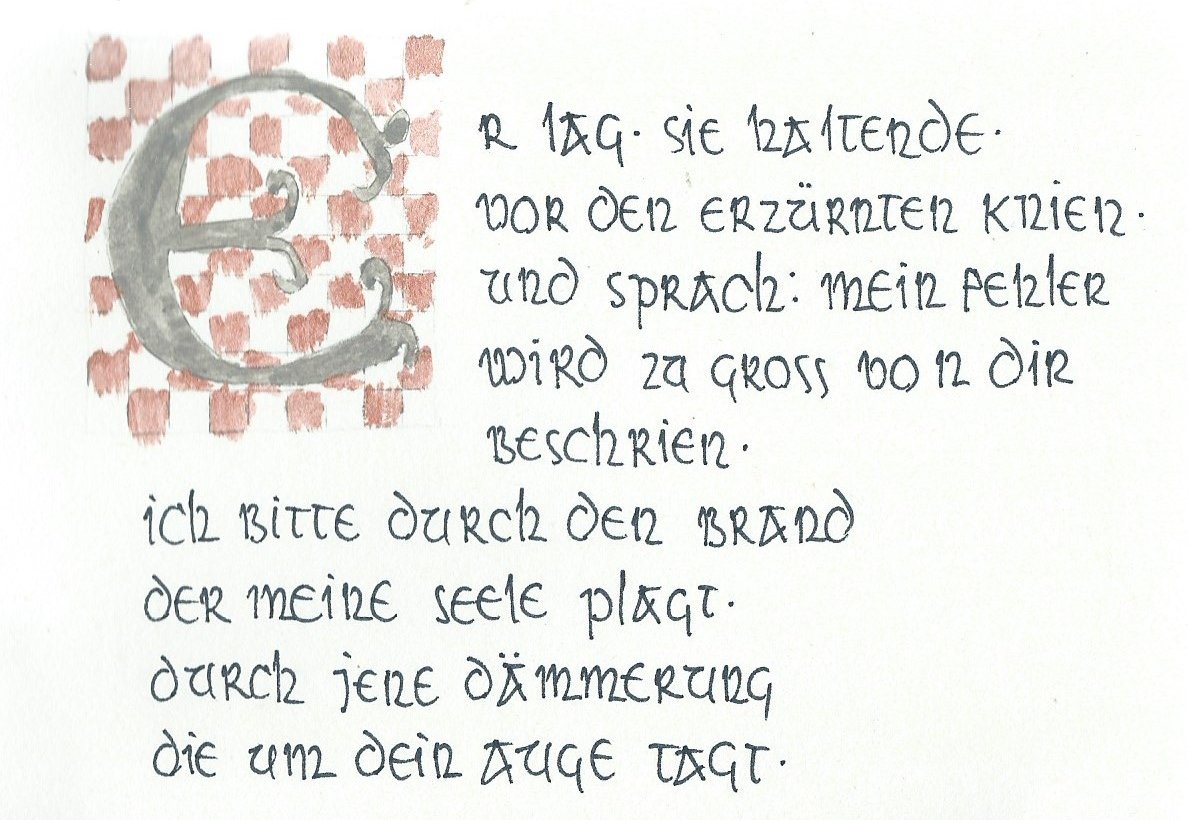 ER LAG· SIE HALTENDE·
VOR DEN ERZÜRNTEN KNIEN·
UND SPRACH: MEIN FEHLER
WIRD ZU GROSS VON DIR
BESCHRIEN·
ICH BITTE DURCH DEN BRAND
DER MEINE SEELE PLAGT·
DURCH JENE DÄMMERUNG
DIE UM DEIN AUGE TAGT·